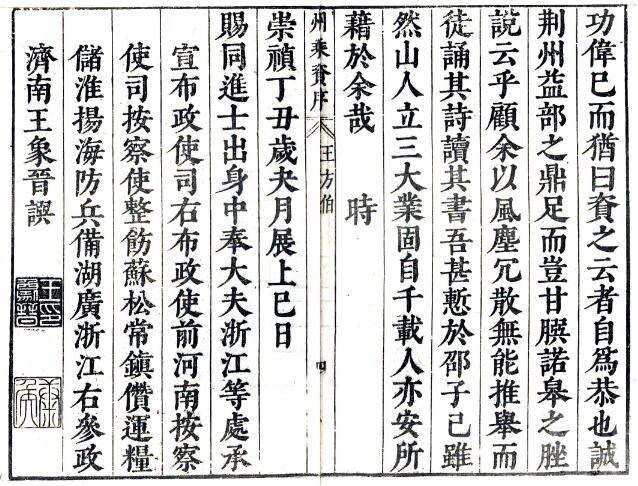 功偉已而猶曰資之云者自為恭也誠
荆州益部之鼎足而豈甘䐑諾皋之脞
說云乎顧余以風塵冗散無能推舉而
徒誦其詩讀其書吾甚慙於邵子已雖
然山人立三大業固自千載人亦安所
藉於余哉　　時
州乘資序　王方伯　四
崇禎丁丑歲夬月展上巳日
賜同進士出身中奉大夫浙江等處承
宣布政使司右布政使前河南按察
使司按察使整飭蘇松常鎮儹運糧
儲淮揚海防兵備湖廣浙江右參政
濟南王象晉譔